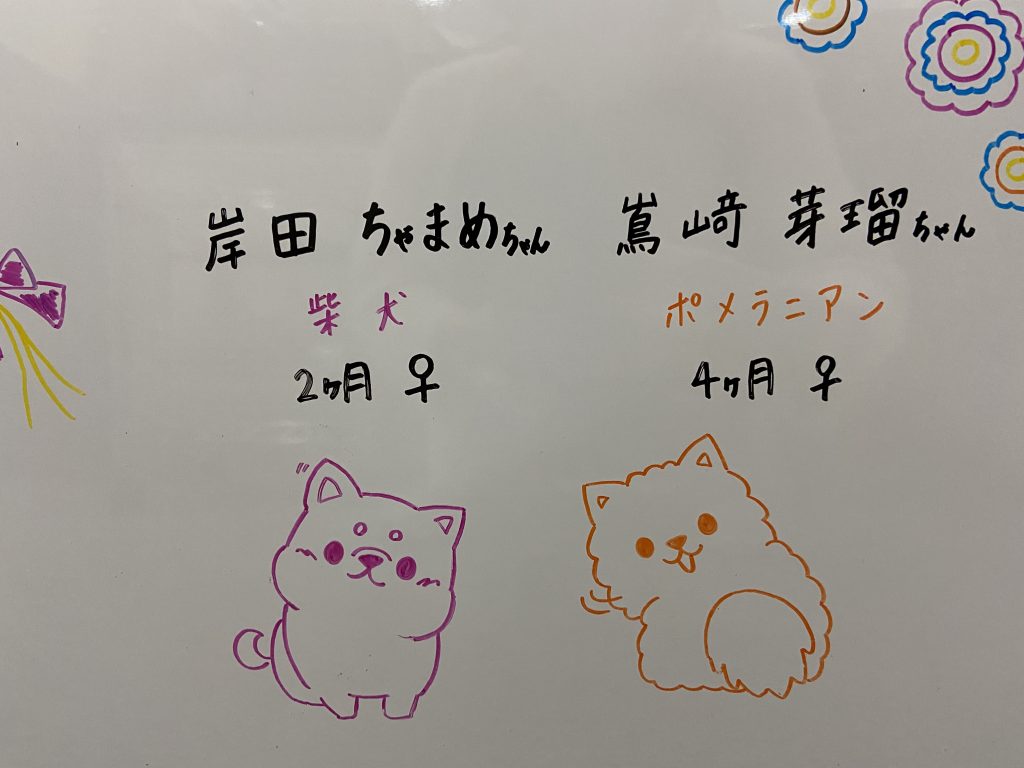 岸田 ちゃまめちゃん
柴犬
2ヶ月 ♀
嶌﨑 芽瑠ちゃん
ポメラニアン
4ヶ月 ♀